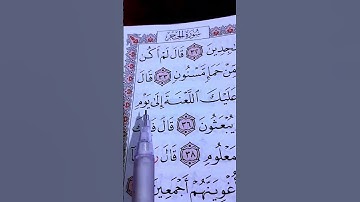 سُورَةُ الْحِجْرِ
ـٰجِدِينَ ٣٢ قَالَ لَمْ أَكُن
مِّنْ حَمَإٍ مَّسْنُونٍ ٣٣ قَالَ
عَلَيْكَ اللَّعْنَةَ إِلَىٰ يَوْمِ
يُبْعَثُونَ ٣٦ قَالَ فَإِنَّكَ
مَعْلُومِ ٣٨ قَالَ رَبِّ
أُغْوِيَنَّهُمْ أَجْمَعِينَ